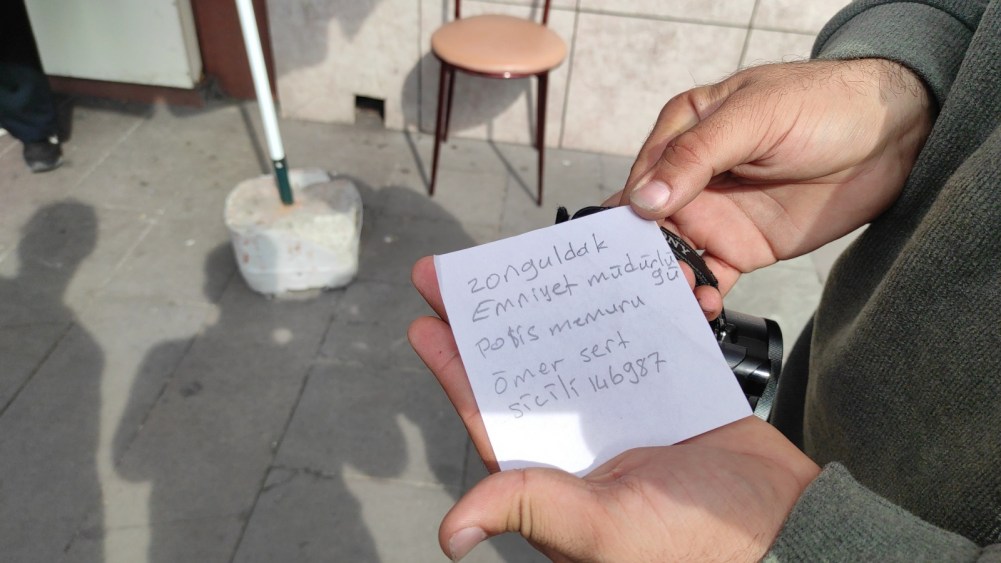 zonguldak
Emniyet müdürlü
ğü
polis memuru
ömer sert
sicili 146987